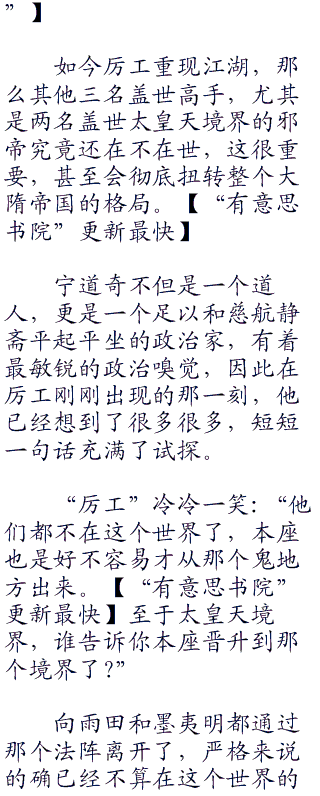 ”】
如今厉工重现江湖，那
么其他三名盖世高手，尤其
是两名盖世太皇天境界的邪
帝究竟还在不在世，这很重
要，甚至会彻底扭转整个大
隋帝国的格局。【“有意思
书院”更新最快】
宁道奇不但是一个道
人，更是一个足以和慈航静
斋平起平坐的政治家，有着
最敏锐的政治嗅觉，因此在
厉工刚刚出现的那一刻，他
已经想到了很多很多，短短
一句话充满了试探。
“厉工”冷冷一笑：“他
们都不在这个世界了，本座
也是好不容易才从那个鬼地
方出来。【“有意思书院”
更新最快】至于太皇天境
界，谁告诉你本座晋升到那
个境界了？”
向雨田和墨夷明都通过
那个法阵离开了，严格来说
的确已经不算在这个世界的